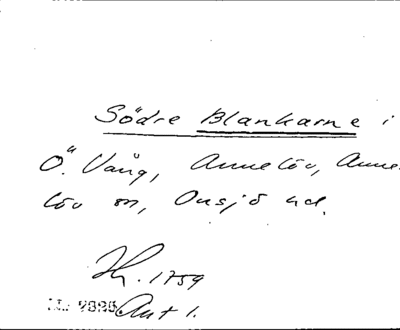 Södre Blankarne i
Ö. Vång, Annelöv, Anne-
löv sn, Onsjö hd.
1759
Akt 1.